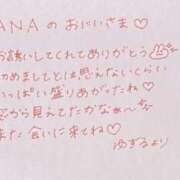 ANAのおにいさま♡
お誘いしてくれてありがとう
めましてとは思えないくらい
っぱい盛りあがったね♡
から見えてたかなぁ〜
また会いに来てね♡
ゆずるより